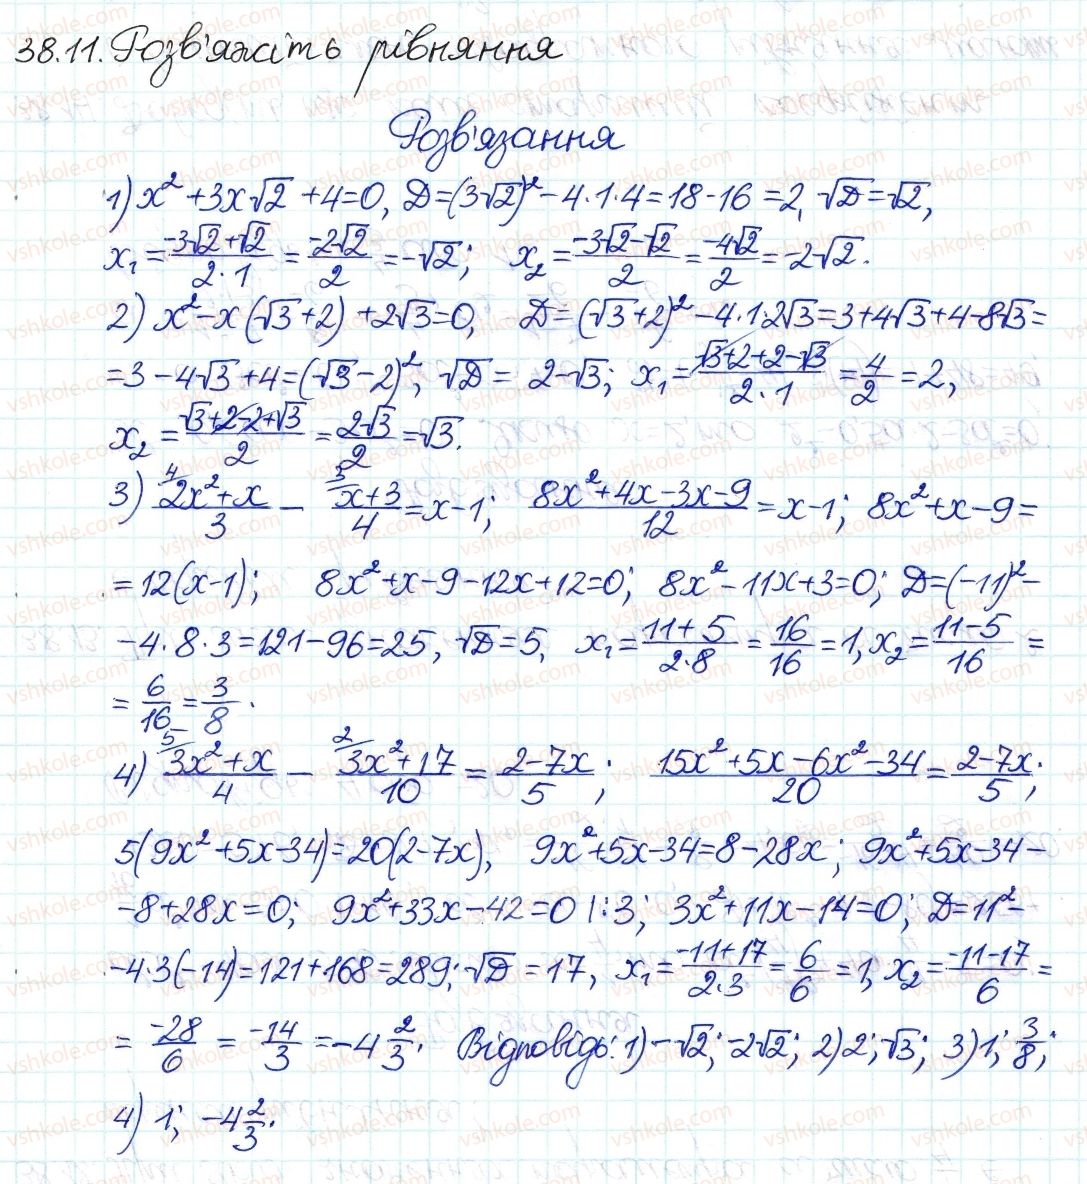 38.11. Розв'яжіть рівняння
Розв'язання
1) x² + 3x√2 + 4 = 0, D = (3√2)² - 4·1·4 = 18 - 16 = 2, √D = √2,
x₁ = (-3√2 + √2)/(2·1) = (-2√2)/2 = -√2; x₂ = (-3√2 - √2)/2 = (-4√2)/2 = -2√2.
2) x² - x(√3 + 2) + 2√3 = 0, D = (√3 + 2)² - 4·1·2√3 = 3 + 4√3 + 4 - 8√3 =
= 3 - 4√3 + 4 = (√3 - 2)², √D = 2 - √3; x₁ = (√3 + 2 + 2 - √3)/(2·1) = 4/2 = 2,
x₂ = (√3 + 2 - 2 + √3)/2 = (2√3)/2 = √3.
3) ⁴⁾(2x² + x)/3 - ³⁾(x + 3)/4 = x - 1; (8x² + 4x - 3x - 9)/12 = x - 1; 8x² + x - 9 =
= 12(x - 1); 8x² + x - 9 - 12x + 12 = 0; 8x² - 11x + 3 = 0; D = (-11)² -
- 4·8·3 = 121 - 96 = 25, √D = 5, x₁ = (11 + 5)/(2·8) = 16/16 = 1, x₂ = (11 - 5)/16 =
= 6/16 = 3/8.
4) ⁵⁾(3x² + x)/4 - ²⁾(3x² + 17)/10 = (2 - 7x)/5; (15x² + 5x - 6x² - 34)/20 = (2 - 7x)/5;
5(9x² + 5x - 34) = 20(2 - 7x), 9x² + 5x - 34 = 8 - 28x; 9x² + 5x - 34 -
- 8 + 28x = 0; 9x² + 33x - 42 = 0 |:3; 3x² + 11x - 14 = 0; D = 11² -
- 4·3(-14) = 121 + 168 = 289; √D = 17, x₁ = (-11 + 17)/(2·3) = 6/6 = 1, x₂ = (-11 - 17)/6 =
= -28/6 = -14/3 = -4 2/3. Відповідь: 1) -√2; -2√2; 2) 2; √3; 3) 1; 3/8;
4) 1; -4 2/3.